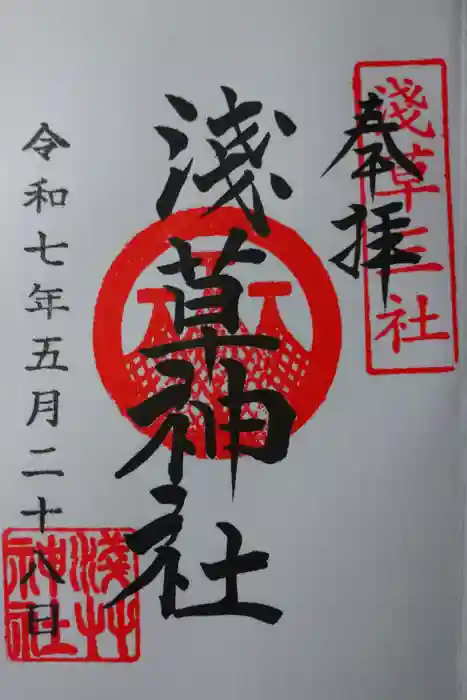 奉拝
淺草三社
淺草神社
令和七年五月二十八日
淺草神社